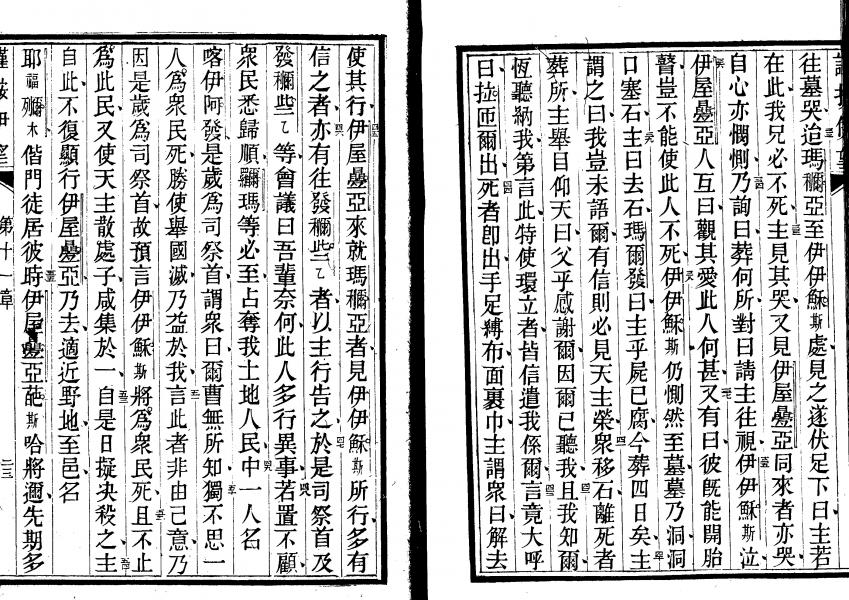 往墓哭迨瑪穪亞至伊伊穌斯處見之遂伏足下曰主若
在此我兄必不死主見其哭又見伊屋疊亞同來者亦哭
自心亦憫惻乃詢曰葬何所對曰請主往視伊伊穌斯泣
伊屋疊亞人互曰觀其愛此人何甚又有曰彼旣能開胎
瞽豈不能使此人不死伊伊穌斯仍惻然至墓墓乃洞洞
口塞石主曰去石瑪爾發曰主乎屍已腐今葬四日矣主
謂之曰我豈未語爾有信則必見天主榮衆移石離死者
葬所主舉目仰天曰父乎感謝爾因爾已聽我且我知爾
恆聽納我第言此特使環立者皆信遣我係爾言竟大呼
曰拉匝爾出死者卽出手足縛布面裹巾主謂衆曰解去
使其行伊屋疊亞來就瑪穪亞者見伊伊穌斯所行多有
信之者亦有往發穪些乙者以主行告之於是司祭首及
發穪些乙等會議曰吾輩奈何此人多行異事若置不顧
衆民悉歸順羅瑪等必至占奪我土地人民中一人名
喀伊阿發是歲爲司祭首謂衆曰爾曹無所知獨不思一
人爲衆民死勝使舉國滅乃益於我言此者非由己意乃
因是歲爲司祭首故預言伊伊穌斯將爲衆民死且不止
爲此民又使天主散處子咸集於一自是日擬決殺之主
自此不復顯行伊屋疊亞乃去適近野地至邑名
耶福殪木偕門徒居彼時伊屋疊亞葩斯哈將邇先期多
第十一章
二三